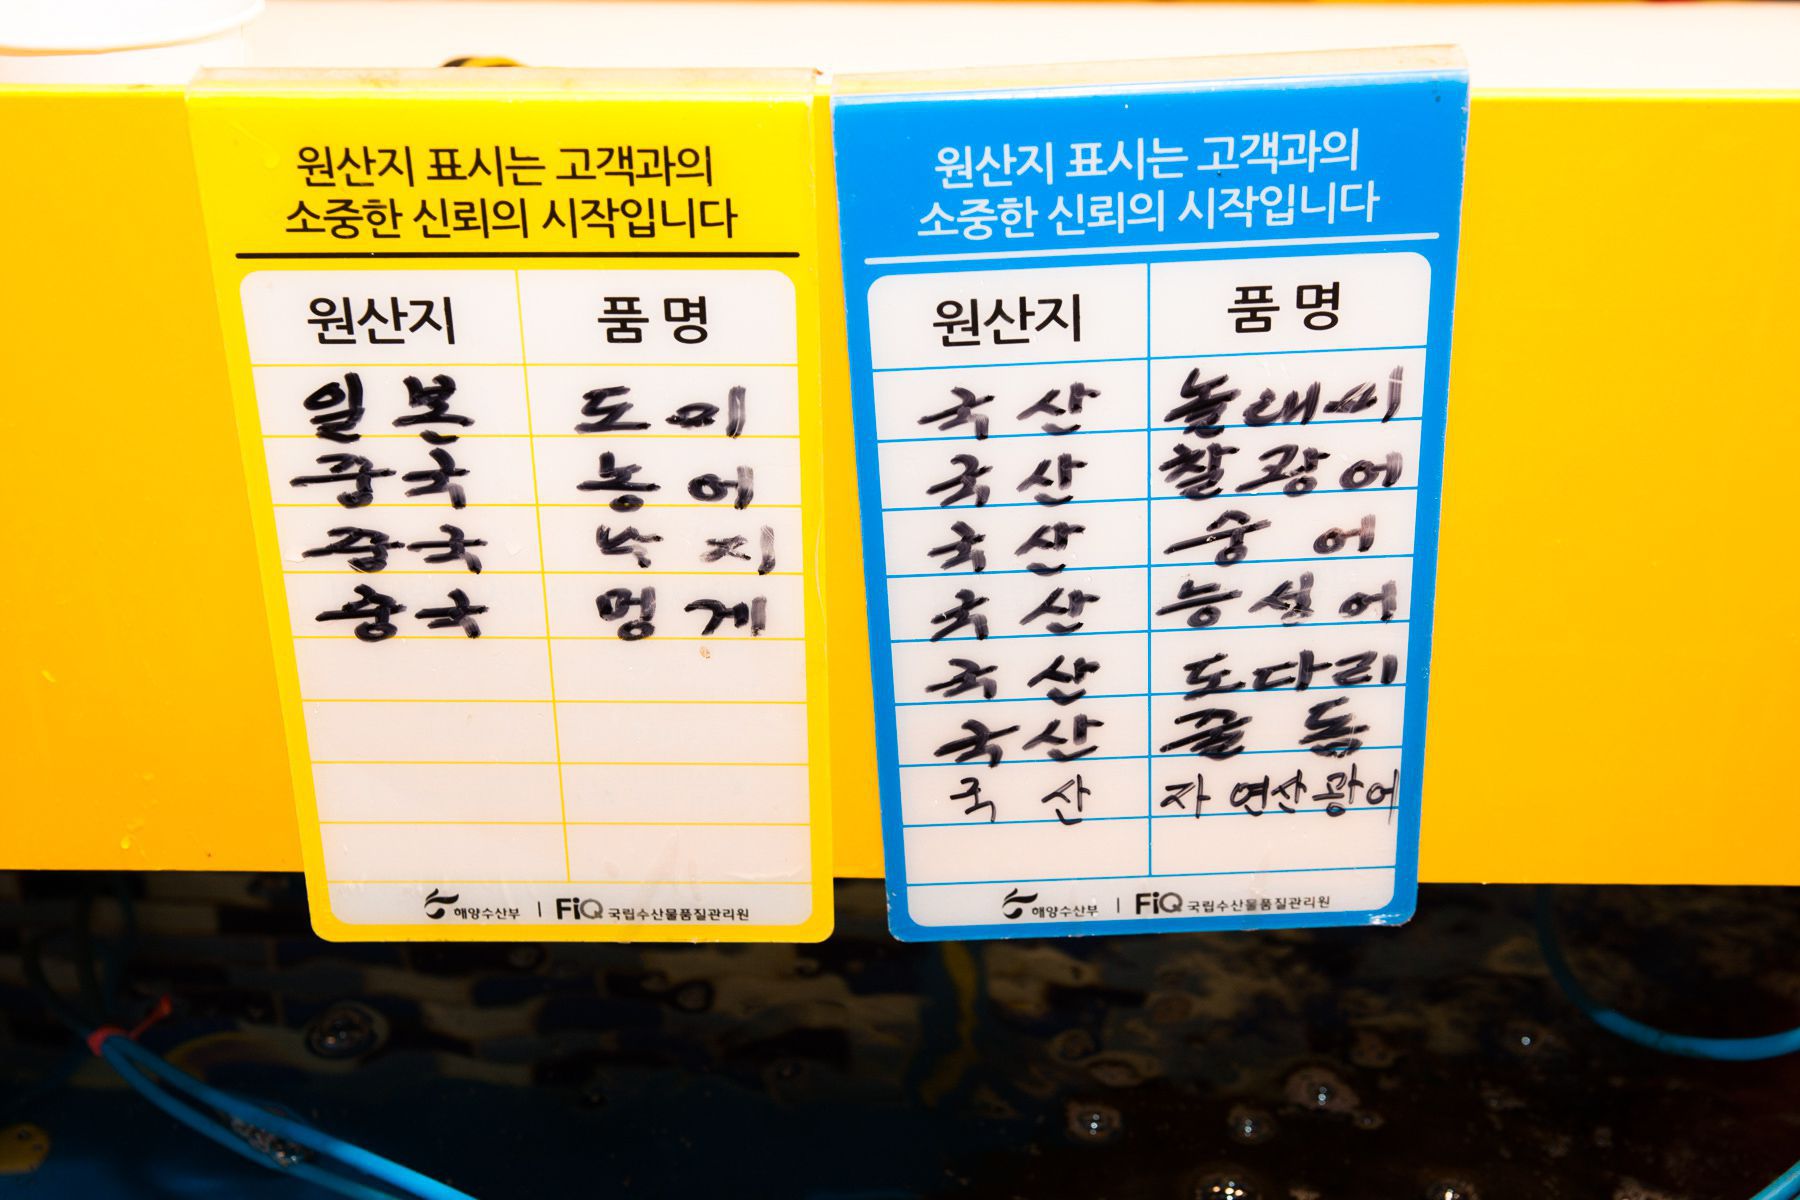 원산지 표시는 고객과의
소중한 신뢰의 시작입니다
원산지 품명
일본 도미
중국 농어
중국 낙지
중국 멍게
해양수산부 | FiQ 국립수산물품질관리원
원산지 표시는 고객과의
소중한 신뢰의 시작입니다
원산지 품명
국산 놀래미
국산 찰광어
국산 숭어
국산 능성어
국산 도다리
국산 돌돔
국산 자연산광어
해양수산부 | FiQ 국립수산물품질관리원